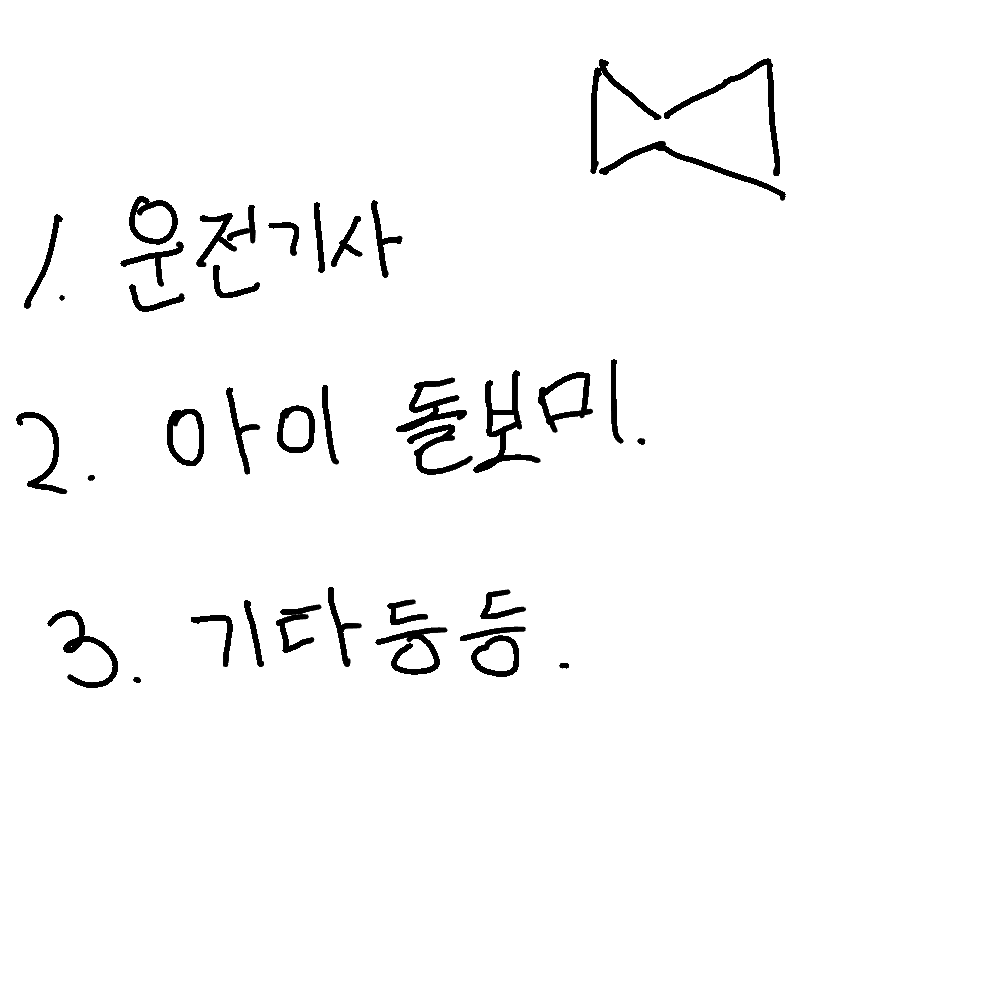 1. 운전기사
2. 아이 돌보미.
3. 기타등등.